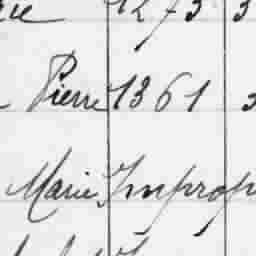 1273 3
Pierre 1361
Marie Improp